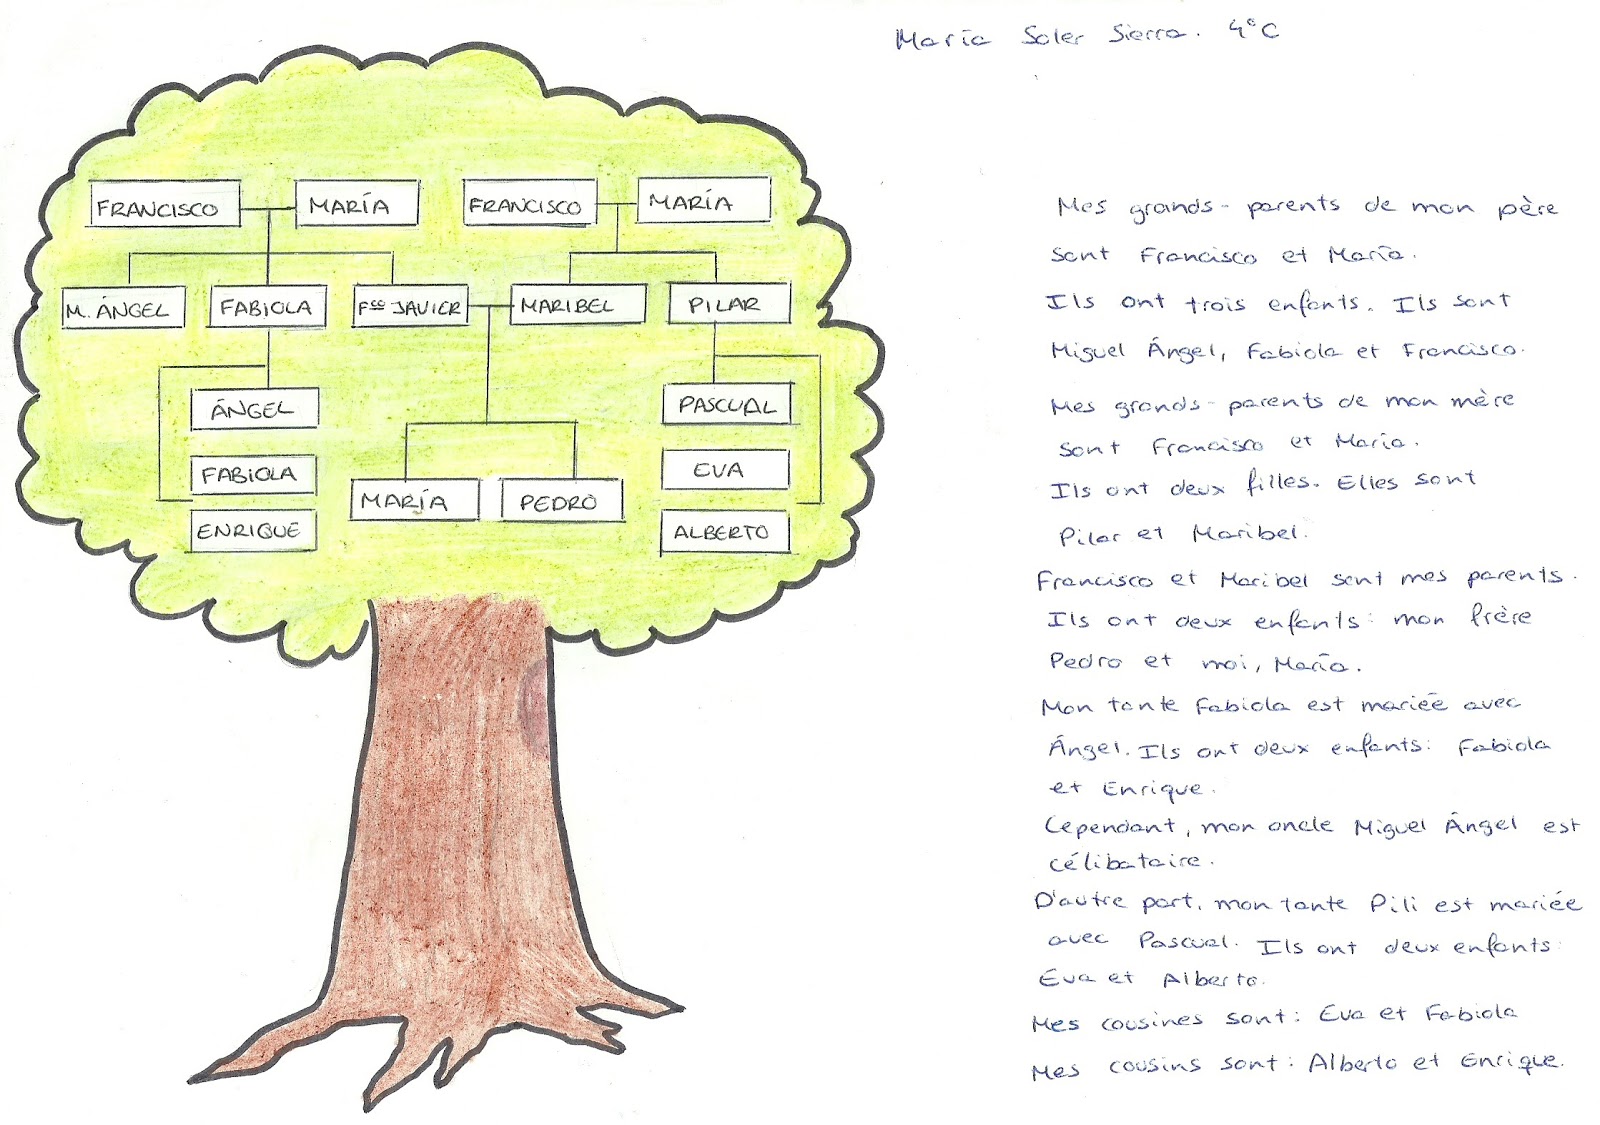 María Soler Sierra. 4ºC
FRANCISCO MARÍA FRANCISCO MARÍA
M. ÁNGEL FABIOLA Fco JAVIER MARIBEL PILAR
ÁNGEL PASCUAL
FABIOLA EVA
MARÍA PEDRO
ENRIQUE ALBERTO
Mes grands-parents de mon père
sont Francisco et María.
Ils ont trois enfants. Ils sont
Miguel Ángel, Fabiola et Francisco.
Mes grands-parents de mon mère
sont Francisco et María.
Ils ont deux filles. Elles sont
Pilar et Maribel.
Francisco et Maribel sont mes parents.
Ils ont deux enfants: mon frère
Pedro et moi, María.
Mon tante Fabiola est mariée avec
Ángel. Ils ont deux enfants: Fabiola
et Enrique.
Cependant, mon oncle Miguel Ángel est
célibataire.
D'autre part, mon tante Pili est mariée
avec Pascual. Ils ont deux enfants:
Eva et Alberto.
Mes cousines sont: Eva et Fabiola
Mes cousins sont: Alberto et Enrique.